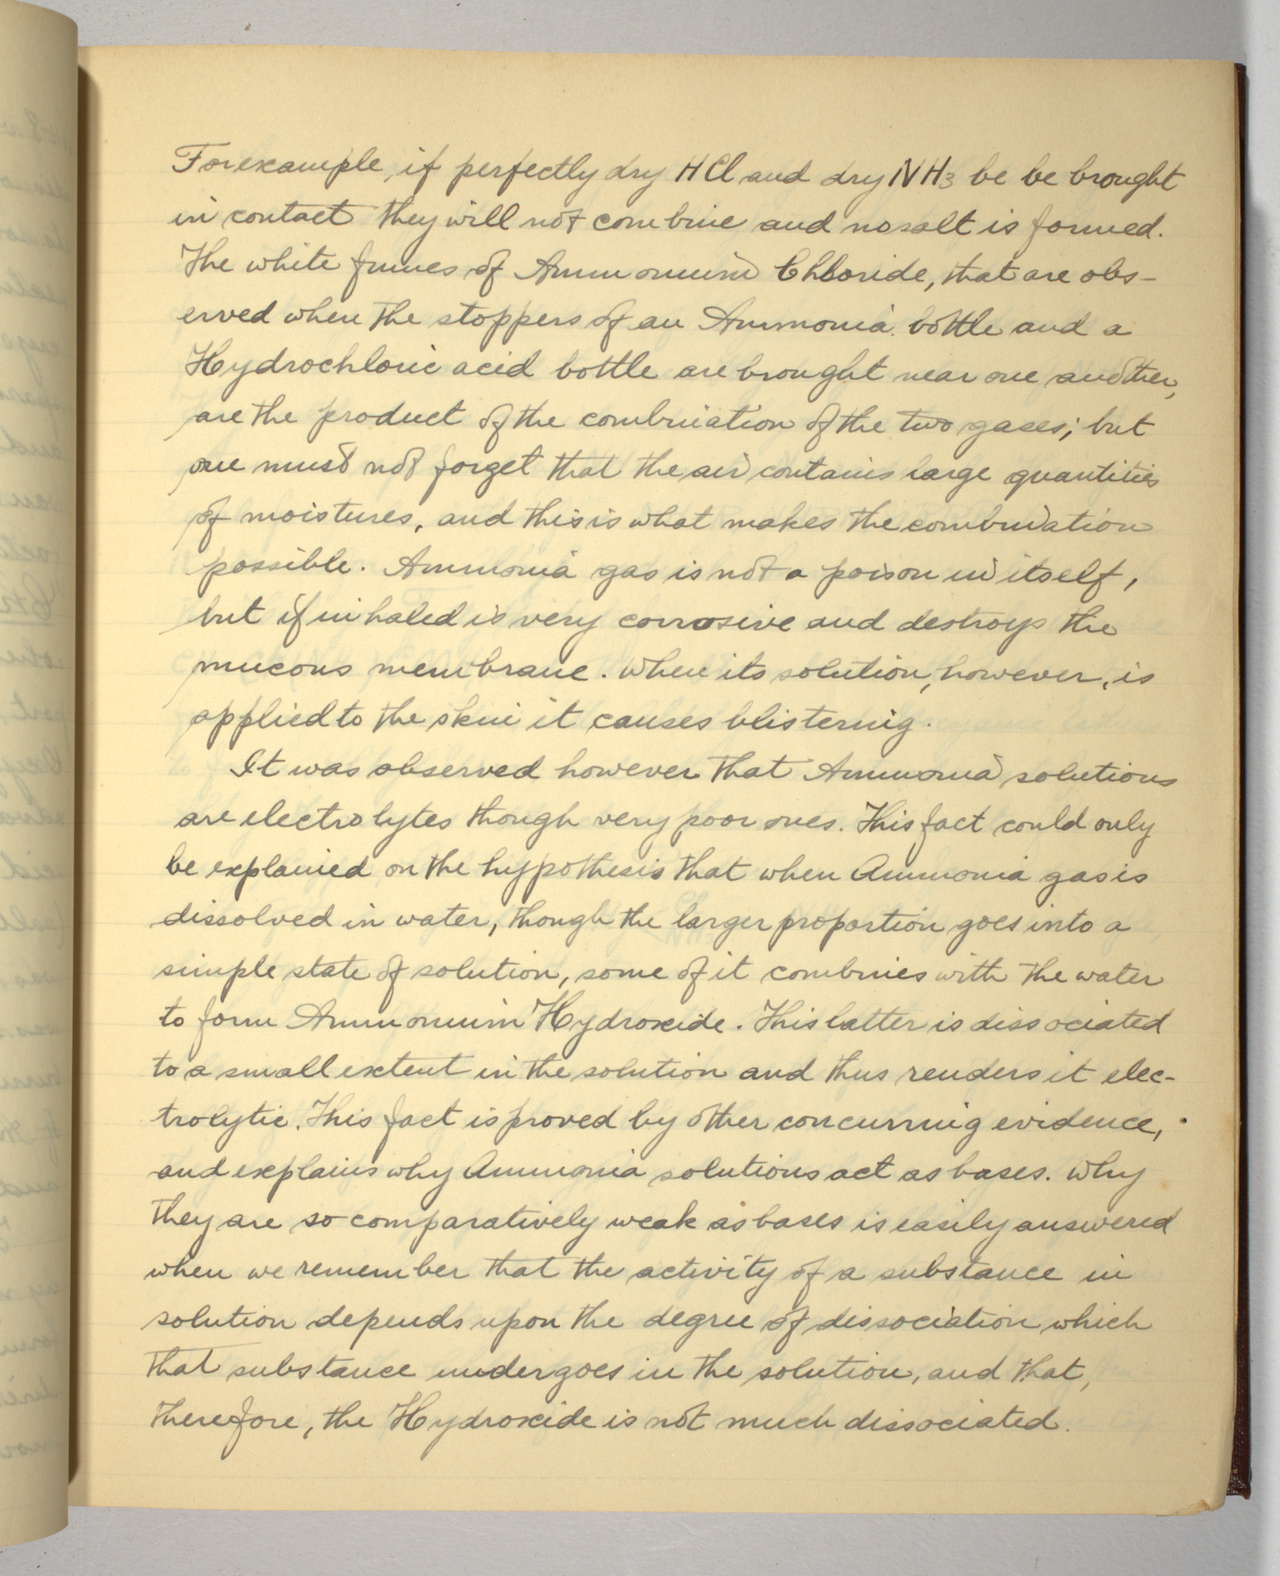 For example, if perfectly dry HCl and dry NH3 be be brought
in contact they will not combine and no salt is formed.
The white fumes of Ammonium Chloride, that are obs-
erved when the stoppers of an Ammonia bottle and a
Hydrochloric acid bottle are brought near one another,
are the product of the combination of the two gases; but
one must not forget that the air contains large quantities
of moistures, and this is what makes the combination
possible. Ammonia gas is not a poison in itself,
but if inhaled is very corrosive and destroys the
mucous membrane. When its solution, however, is
applied to the skin it causes blistering.
It was observed however that Ammonia solutions
are electrolytes though very poor ones. This fact could only
be explained on the hypothesis that when Ammonia gas is
dissolved in water, though the larger proportion goes into a
simple state of solution, some of it combines with the water
to form Ammonium Hydroxide. This latter is dissociated
to a small extent in the solution and thus renders it elec-
trolytic. This fact is proved by other concurring evidence,
and explains why Ammonia solutions act as bases. Why
they are so comparatively weak as bases is easily answered
when we remember that the activity of a substance in
solution depends upon the degree of dissociation which
that substance undergoes in the solution, and that,
therefore, the Hydroxide is not much dissociated.